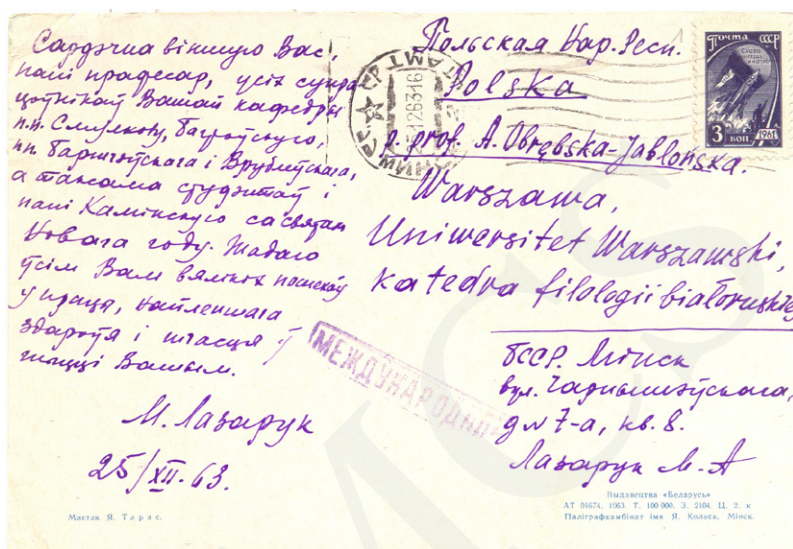 Сардэчна віншую Вас,
пані прафесар, усіх супра
цоўнікаў Вашай кафедры
п.п. Смулкову, Баброўскую,
пп. Баршчэўскага і Врублеўскага,
а таксама студэнтаў і
пані Камінскую са святам
Новага году. Жадаю
ўсім Вам вялікіх поспехаў
у працы, найлепшага
здароўя і шчасця ў
жыцці Вашым.
М. Лазарук
25/XII-63.
Мастак Я. Тарас.
Польская Нар. Респ.
Polska
p. prof. A. Obrębska-Jabłońska.
Warszawa,
Uniwersitet Warszawski,
Katedra filologii białoruskiej
ПОЧТА СССР
3 КОП
1961
МЕЖДУНАРОДНОЕ
БССР. Мінск
вул. Чарнышэўскага,
д N 7-а, кв. 8.
Лазарук М. А
Выдавецтва «Беларусь»
АТ 01674. 1963. Т. 100 000. З. 2104. Ц. 2. к
Паліграфкамбінат імя Я. Коласа, Мінск.